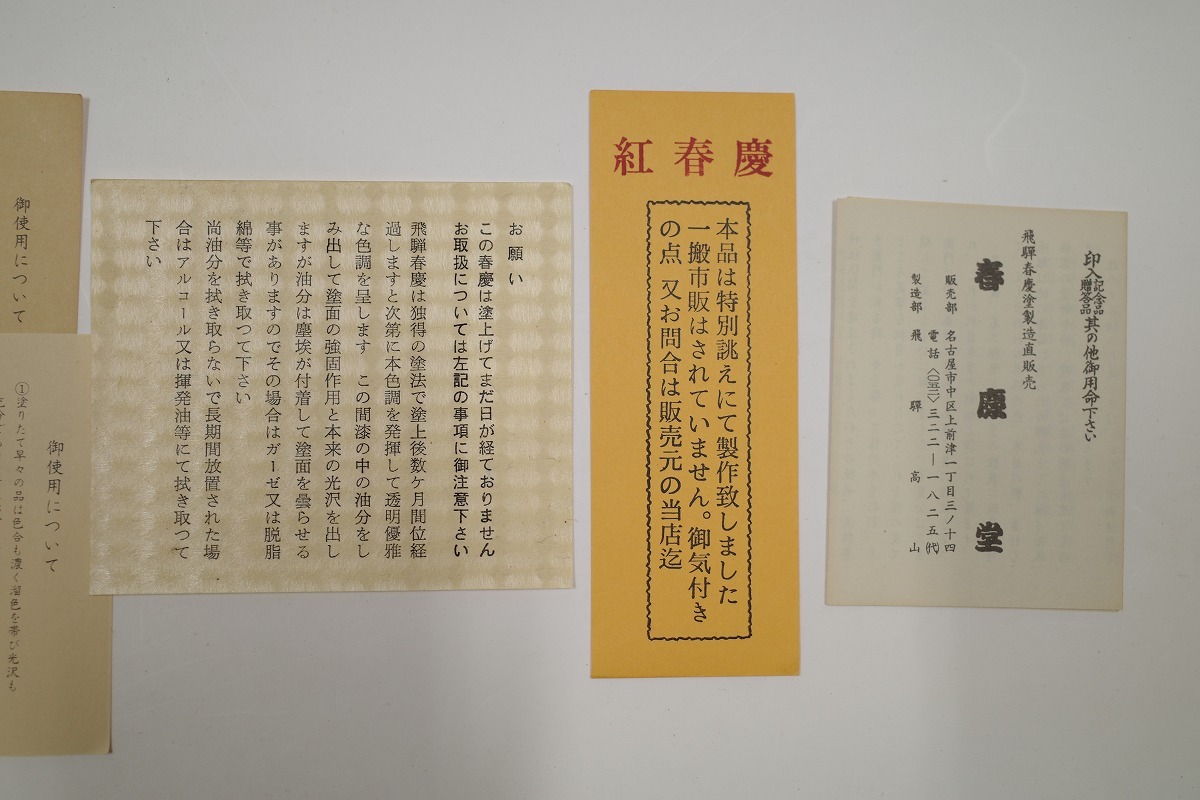 御使用について
御使用について
①塗りたて早々の品は色合も濃く溜色を帯び光沢も
お願い
この春慶は塗上げてまだ日が経ておりません
お取扱については左記の事項に御注意下さい
飛騨春慶は独得の塗法で塗上後数ケ月間位経
過しますと次第に本色調を発揮して透明優雅
な色調を呈します この間漆の中の油分をし
み出して塗面の強固作用と本来の光沢を出し
ますが油分は塵埃が付着して塗面を曇らせる
事がありますのでその場合はガーゼ又は脱脂
綿等で拭き取つて下さい
尚油分を拭き取らないで長期間放置された場
合はアルコール又は揮発油等にて拭き取つて
下さい
紅春慶
本品は特別誂えにて製作致しました
一搬市販はされていません。御気付き
の点、又お問合は販売元の当店迄
印入記念品贈答品其の他御用命下さい
飛騨春慶塗製造直販売
春慶堂
販売部 名古屋市中区上前津一丁目三ノ十四
電話〈〇五二〉三二二―一八二五(代)
製造部 飛騨高山